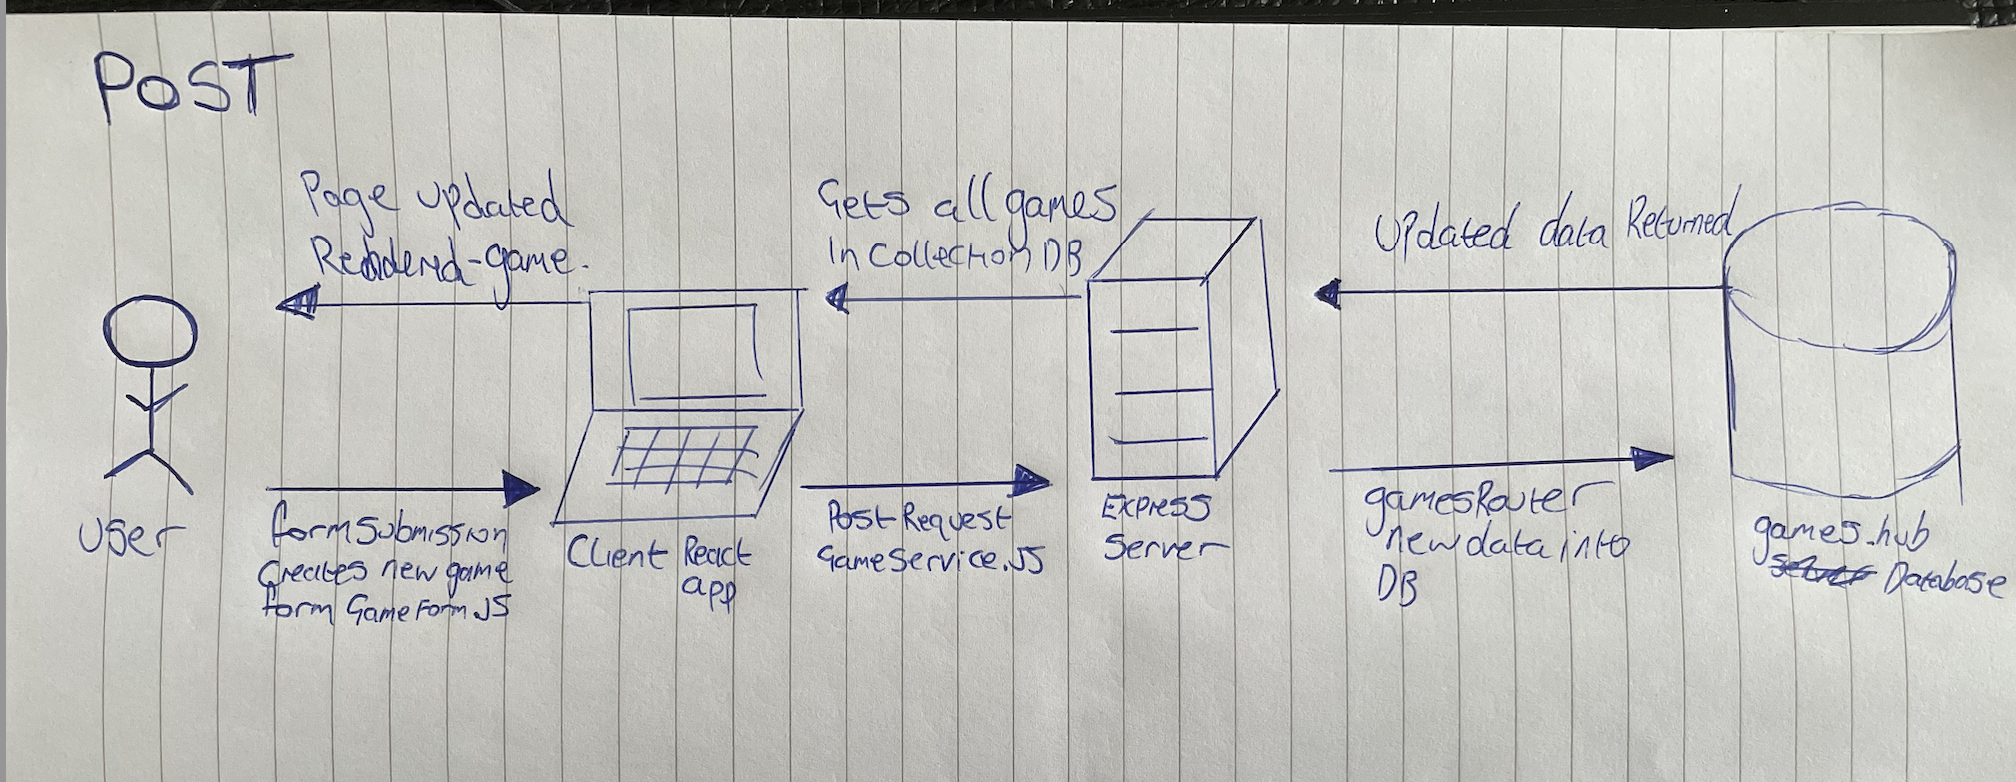 POST
Page updated
Rendered-game.
Gets all games
In Collection DB
Updated data Returned
User
form submission
Creates new game
form GameForm.JS
Client React
app
Post Request
GameService.JS
Express
Server
gamesRouter
new data into
DB
games.hub
Database